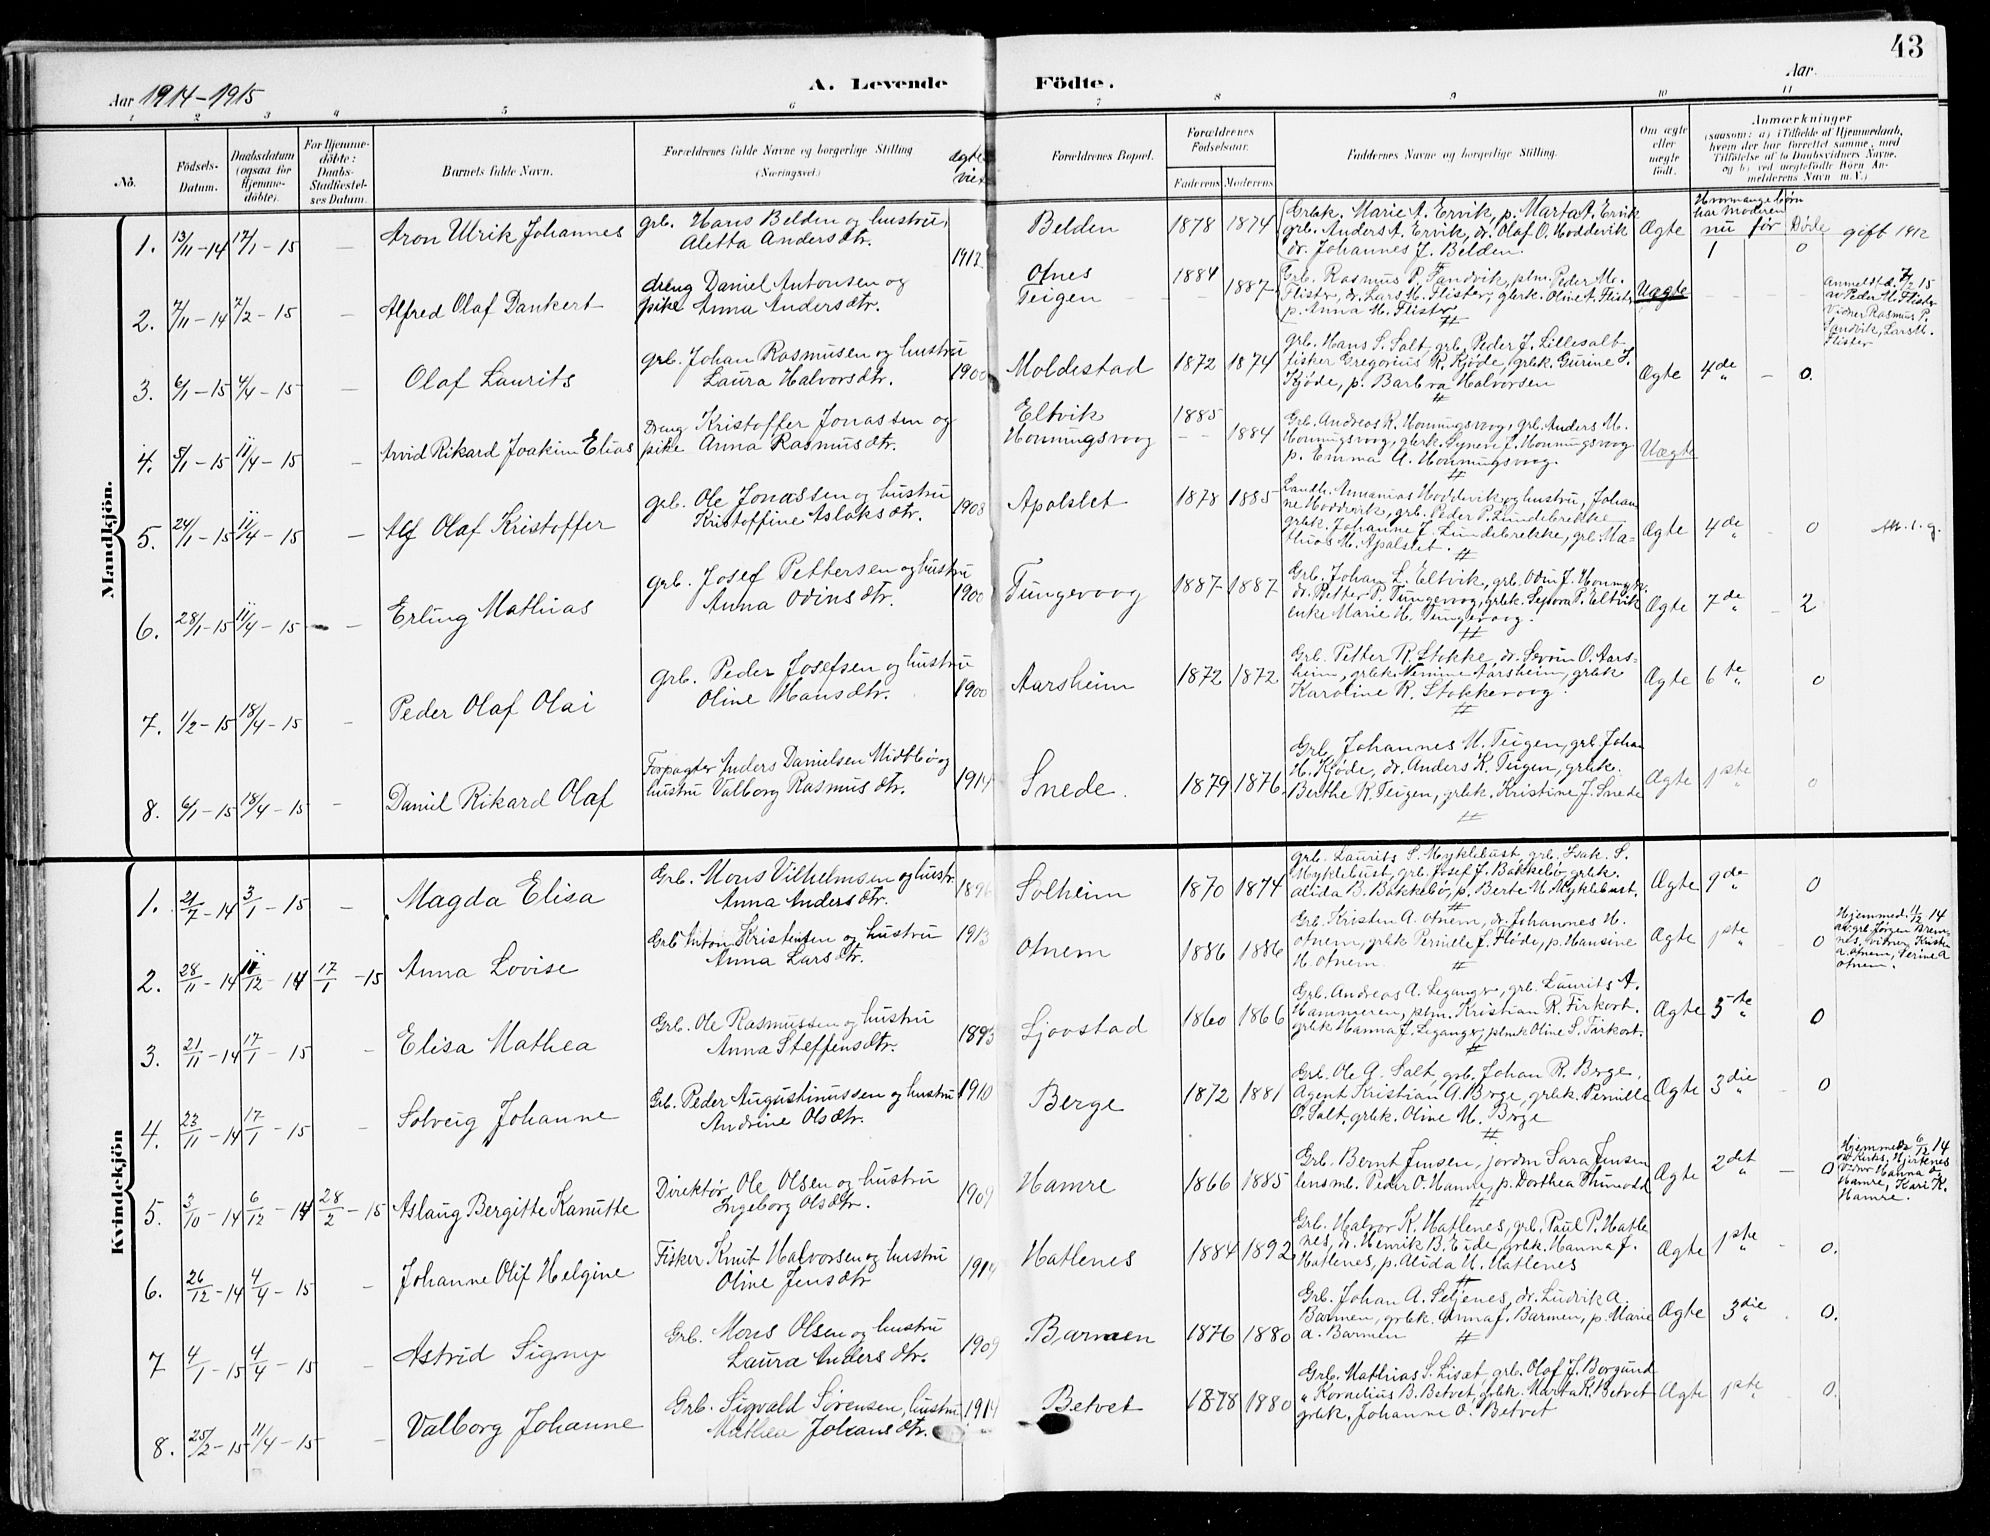 43
Aar 1914-1915
A. Levende Födte.
Aar.
1 2 3 4 5 6 7 8 9 10 11
No.
Födsels-Datum.
Daabsdatum (ogsaa for Hjemmedöbte).
For Hjemmedöbte: Daabs-Stadfæstelses Datum.
Barnets fulde Navn.
Forældrenes fulde Navne og borgerlige Stilling (Næringsvei.)
Ægte viet
Forældrenes Bopæl.
Forældrenes Födselsaar.
Faderens Moderens
Faddernes Navne og borgerlige Stilling.
Om ægte eller uægte födt.
Anmærkninger
(saasom: a) i Tilfælde af Hjemmedaab, hvem der har forrettet samme, med Tilföielse af to Daabsvidners Navne, og b) ved uægtefödte Börn Anmelderens Navn m. V.)
Hvormange börn har moderen
nu før Døde
Mandkjön.
1. 13/11-14 17/1-15 — Aron Ulrik Johannes
grb. Hans Belden og hustru,
Aletta Andersdtr. 1912
Belden 1878 1874
Grbk. Marie A. Ervik, p. Marta A. Ervik
grb. Anders A. Ervik, dr. Olaf O. Hoddevik
dr. Johannes J. Belden.
Ægte 1 0 gift 1912
2. 7/11-14 7/2-15 — Alfred Olaf Dankert
dreng Daniel Antonsen og
pike Anna Andersdtr.
Otnes 1884
Teigen 1887
Grb. Rasmus P. Sandvik, plm. Peder M.
Flister, dr. Lars M. Flister, gbrk. Oline A. Flister
p. Anna M. Flister
Uægte
Anmeldt d. 7/2 15
av Peder M. Flister
Vidner Rasmus P.
Sandvik, Lars M.
Flister
3. 6/1-15 4/4-15 — Olaf Laurits
grb. Johan Rasmusen og hustru
Laura Halvorsdtr. 1900
Moldestad 1872 1874
grb. Hans S. Salt, grb. Peder J. Lillesalt
fisker Gregorius R. Kjøde, grbk. Gurine J.
Kjøde, p. Barbra Halvorsen
Ægte 4de — 0.
4. 5/1-15 11/4-15 — Arvid Rikard Joakim Elias
Dreng Kristoffer Jonassen og
pike Anna Rasmusdtr.
Eltvik 1885
Honningsvoog 1884
Grb. Andreas R. Honningsvog, grb. Anders M.
Honningsvoog, gbrk. Synev J. Honningsvoog
p. Emma A. Honningsvoog.
Uægte
5. 24/1-15 11/4-15 — Alf Olaf Kristoffer
grb. Ole Jonassen og hustru
Kristoffine Aslaksdtr. 1908
Apalslet 1878 1885
Landh. Annanias Hoddevik og hustru, Johan
ne Hoddevik, grb. Peder P. Lundebrekke
grbk. Johanne J. Lundebrekke, grb. Ma-
thias M. Apalslet.
Ægte 4de — 0
6. 28/1-15 11/4-15 — Erling Mathias
grb. Josef Pettersen og hustru
Anna Odinsdtr. 1900
Tungevoog 1887 1887
Grb. Johan L. Eltvik, grb. Odin J.
dr. Petter P. Tungevoog, grbk. P. Eltvik
enke Marie H. Tungevoog.
Ægte 7de — 2
7. 1/2-15 18/4-15 — Peder Olaf Olai
grb. Peder Josefsen og hustru
Oline Hansdtr. 1900
Aarsheim 1872 1872
Grb. Petter R. Stokke, dr. Sevrin O. Aars-
heim, grbk. Nimine Aarsheim, grbk
Karoline R. Stokkevoog.
Ægte 6te 0
8. 6/1-15 18/4-15 — Daniel Rikard Olaf
Forpagter Anders Danielsen Midtbø og
hustru Valborg Rasmusdtr. 1914
Snede. 1879 1876.
Grb. Johannes M. Teigen, grb. Johan
H. Kjøde, dr. Anders K. Teigen, grbk.
Berthe R. Teigen, grbk. Kristine J. Snede
Ægte 1ste 0
Kvindekjön
1. 21/7-14 3/1-15 — Magda Elisa
Grb. Mons Vilhelmsen og hustr.
Anna Andersdtr. 1896
Solheim 1870 1874
grb. Laurits S. Myklebust, grb. Isak. S.
Myklebust, grb. Josef J. Bakkebø, grbk.
Alida B. Bakkebø, p. Berte M. Myklebust.
Ægte 9de 0
2. 28/11-14 11/12-14 17/1-15 Anna Lovise
Grb Anton Kristensen og hustru
Anna Larsdtr. 1913
Otnem 1886 1886
Grb. Kristen A. Otnem, dr. Johannes H.
Otnem, grbk Pernille J. Flöde, p. Hansine
H. Otnem.
Ægte 1ste — 0
Hjemmed. 11/12 14
av grb. Jørgen Drem-
nes, vitner Kristen
A. Otnem, Serine A
Otnem.
3. 21/11-14 17/1-15 — Elisa Mathea
Grb. Ole Rasmussen og hustru
Anna Steffensdtr. 1893
Ljoostad 1860 1866
Grb. Andreas A. Leganger, grb. Laurits A.
Hammeren, plm. Kristian R. Tirkort.
grbk Hanna J. Leganger, plmk Oline S. Tirkort.
Ægte 5te 0
4. 23/11-14 17/1-15 — Solveig Johanne
Grb. Peder Augustinussen og hustru
Andrine Olsdtr. 1910
Berge 1872 1881
Grb. Ole A. Salt, grb. Johan R. Brge,
Agent Kristian A. Brge, grbk. Pernille
O. Salt, grbk. Oline M. Brge
Ægte 3die — 0
5. 3/10-14 6/12-14 28/2-15 Aslaug Bergitte Kanutte
Direktør Ole Olsen og hustru
Ingeborg Olsdtr. 1909
Hamre 1866 1885
Grb. Bernt Jensen, jordm Sara Jensen
lensm. Peder O. Hamre, p. Dorthea Thunold
Ægte 2det — 0
Hjemmedø 6/12 14
Vidner Hanna O
Hamre, Kari K.
Hamre.
6. 26/12-14 4/4-15 — Johanne Olif Helgine
Fisker Knut Halvorsen og hustru
Oline Jensdtr 1914
Hatlenes 1884 1892
Grb. Halvor K. Hatlenes, grb. Paul P. Hatle
nes, dr. Henrik B. Eide, grbk. Hanna J.
Hatlenes, p. Alida M. Hatlenes
Ægte 1ste — 0.
7 4/1-15 4/4-15 — Astrid Signy
Grb. Mons Olsen og hustru
Laura Andersdtr. 1909
Barmen 1876 1880
Grb. Johan A. Seljenes, dr. Ludvik A.
Barmen, grbk. Anna J. Barmen, p. Marie
A. Barmen
Ægte 3die — 0.
8. 25/2-15 11/4-15 — Valborg Johanne
Grb. Sigvald Sörensen, hustru
Mathea Johansdtr. 1914
Betvet 1878 1880
Grb. Mathias S. Liset, grb. Olaf J. Borgund
" Kornelius B. Betvet, grbk. Marta K. Betvet
grbk. Johanne O. Betvet
Ægte 1ste — 0.